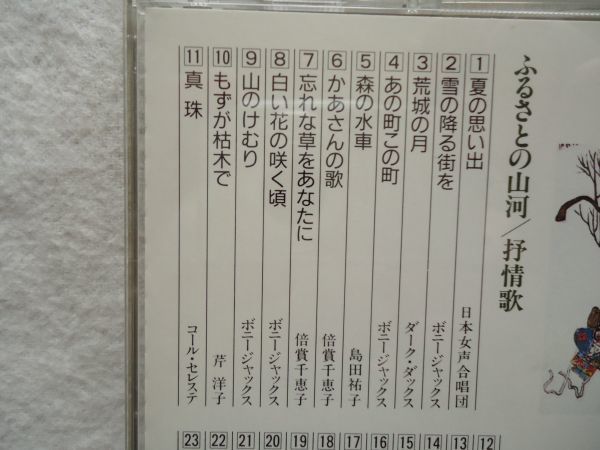 ふるさとの山河／抒情歌
1 夏の思い出 日本女声合唱団
2 雪の降る街を ボニージャックス
3 荒城の月 ダーク・ダックス
4 あの町この町 ボニージャックス
5 森の水車 島田祐子
6 かあさんの歌 倍賞千恵子
7 忘れな草をあなたに 倍賞千恵子
8 白い花の咲く頃 ボニージャックス
9 山のけむり ボニージャックス
10 もずが枯木で 芹洋子
11 真珠 コール・セレステ
12
13
14
15
16
17
18
19
20
21
22
23